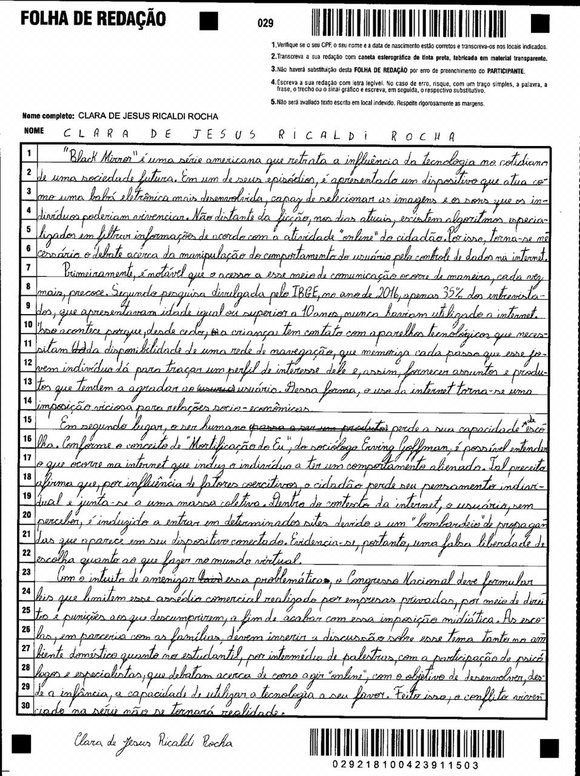 FOLHA DE REDAÇÃO
029
1.Verifique se o seu CPF, o seu nome e a data de nascimento estão corretos e transcreva-os nos locais indicados.
2.Transcreva a sua redação com caneta esferográfica de tinta preta, fabricada em material transparente.
3.Não haverá substituição desta FOLHA DE REDAÇÃO por erro de preenchimento do PARTICIPANTE.
4.Escreva a sua redação com letra legível. No caso de erro, risque, com um traço simples, a palavra, a
frase, o trecho ou o sinal gráfico e escreva, em seguida, o respectivo substitutivo.
5.Não será avaliado texto escrito em local indevido. Respeite rigorosamente as margens.
Nome completo: CLARA DE JESUS RICALDI ROCHA
NOME CLARA DE JESUS RICALDI ROCHA
1 "Black Mirror" é uma série americana que retrata a influência da tecnologia no cotidiano
2 de uma sociedade futura. Em um de seus episódios, é apresentado um dispositivo que atua co-
3 mo uma babá eletrônica mais desenvolvida, capaz de selecionar as imagens e os sons que os in-
4 divíduos poderiam vivenciar. Não distante da ficção, nos dias atuais, existem algoritmos especia-
5 lizados em filtrar informações de acordo com a atividade "online" do cidadão. Por isso, torna-se ne-
6 cessário o debate acerca da manipulação do comportamento do usuário pelo controle de dados na internet.
7 Primeiramente, é notável que o acesso a esse meio de comunicação ocorre de maneira, cada vez
8 mais, precoce. Segundo pesquisa divulgada pelo IBGE, no ano de 2016, apenas 35% dos entrevista-
9 dos, que apresentavam idade igual ou superior a 10 anos, nunca haviam utilizado a internet.
10 Isso acontece porque, desde cedo, a criança tem contato com aparelhos tecnológicos que neces-
11 sitam da disponibilidade de uma rede de navegação, que memoriza cada passo que esse jo-
12 vem indivíduo dá para traçar um perfil de interesse dele e, assim, fornecer assuntos e produ-
13 tos que tendem a agradar ao usuário. Dessa forma, o uso da internet torna-se uma
14 imposição viciosa para relações socio-econômicas.
15 Em segundo lugar, o ser humano passa a ser um produto perde a sua capacidade de esco-
16 lha. Conforme o conceito de "Mortificação do Eu", do sociólogo Erving Goffman, é possível entender
17 o que ocorre na internet que induz o indivíduo a ter um comportamento alienado. Tal preceito
18 afirma que, por influência de fatores coercitivos, o cidadão perde seu pensamento indivi-
19 dual e junta-se a uma massa coletiva. Dentro do contexto da internet, o usuário, sem
20 perceber, é induzido a entrar em determinados sites devido a um "bombardeio" de propagan-
21 das que aparece em seu dispositivo conectado. Evidencia-se, portanto, uma falsa liberdade de
22 escolha quanto ao que fazer no mundo virtual.
23 Com o intuito de amenizar essa problemática, o Congresso Nacional deve formular
24 leis que limitem esse assédio comercial realizado por empresas privadas, por meio de direi-
25 tos e punições aos que descumprirem, a fim de acabar com essa imposição midiática. As esco-
26 las, em parceria com as famílias, devem inserir a discussão sobre esse tema tanto no am-
27 biente doméstico quanto no estudantil, por intermédio de palestras, com a participação de psicó-
28 logos e especialistas, que debatam acerca de como agir "online", com o objetivo de desenvolver, des-
29 de a infância, a capacidade de utilizar a tecnologia a seu favor. Feito isso, o conflito viven-
30 ciado na série não se tornará realidade.
Clara de Jesus Ricaldi Rocha
029218100423911503